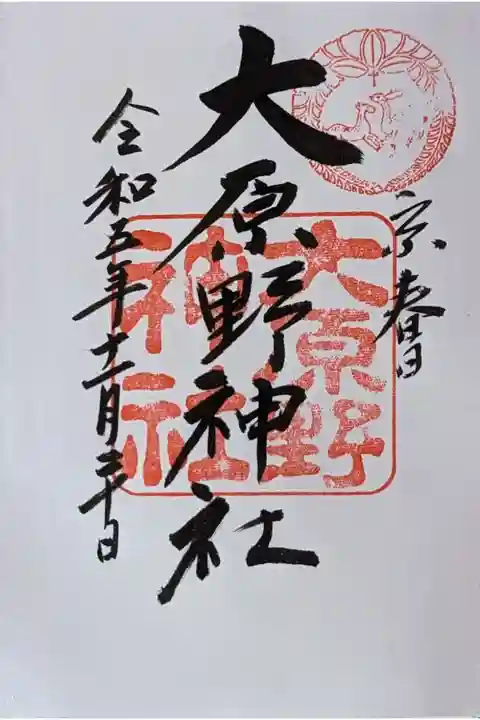 京春日
大原野神社
大原野
神社
令和五年十一月三十日